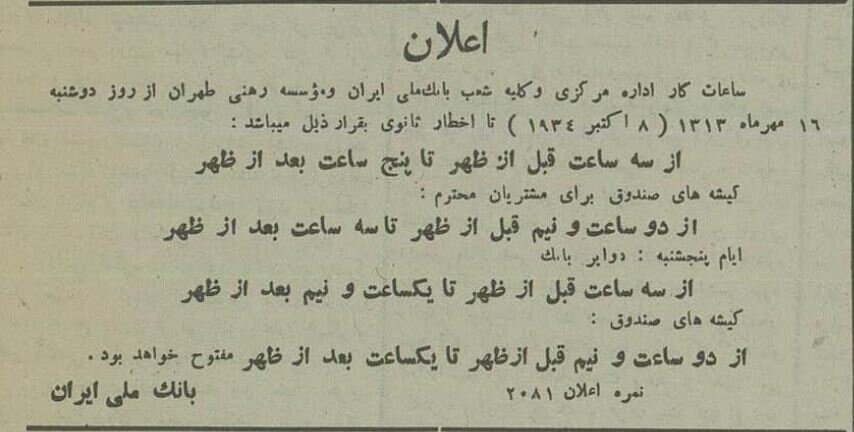 اعلان
ساعات کار اداره مرکزی وکلیه شعب بانك‌ملی ایران ومؤسسه رهنی طهران از روز دوشنبه
۱٦ مهرماه ۱۳۱۳ ( ۸ اکتبر ۱۹۳٤ ) تا اخطار ثانوی بقرار ذیل میباشد :
از سه ساعت قبل از ظهر تا پنج ساعت بعد از ظهر
کیشه های صندوق برای مشتریان محترم :
از دو ساعت و نیم قبل از ظهر تا سه ساعت بعد از ظهر
ایام پنجشنبه : دوایر بانك
از سه ساعت قبل از ظهر تا یکساعت و نیم بعد از ظهر
کیشه های صندوق :
از دو ساعت و نیم قبل ازظهر تا یکساعت بعد از ظهر مفتوح خواهد بود .
نمره اعلان ۲۰۸۱ بانك ملی ایران